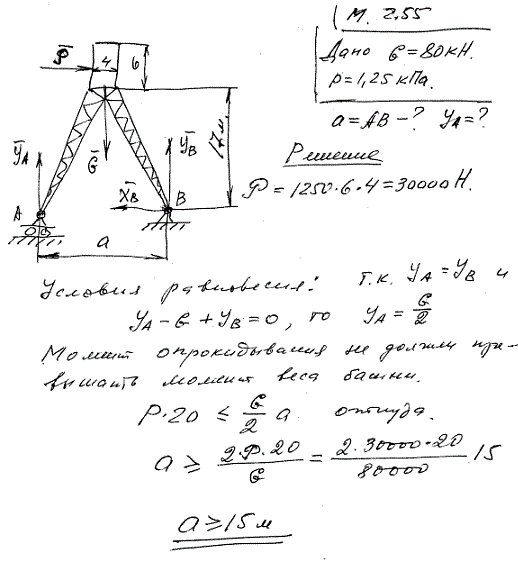 М. 2.55
Дано G = 80 кН.
p = 1,25 кПа.
a = AB – ? YA = ?
Решение
P = 1250·6·4 = 30000 Н.
P
4
6
17 м.
G
YA
YB
XB
A
B
a
Условия равновесия: т.к. YA = YB и
YA – G + YB = 0, то YA = G/2
Момент опрокидывания не должен пре-
вышать момент веса башни.
P·20 ≤ G/2 a откуда.
a ≥ 2·P·20/G = 2·30000·20/80000 15
a ≥ 15 м